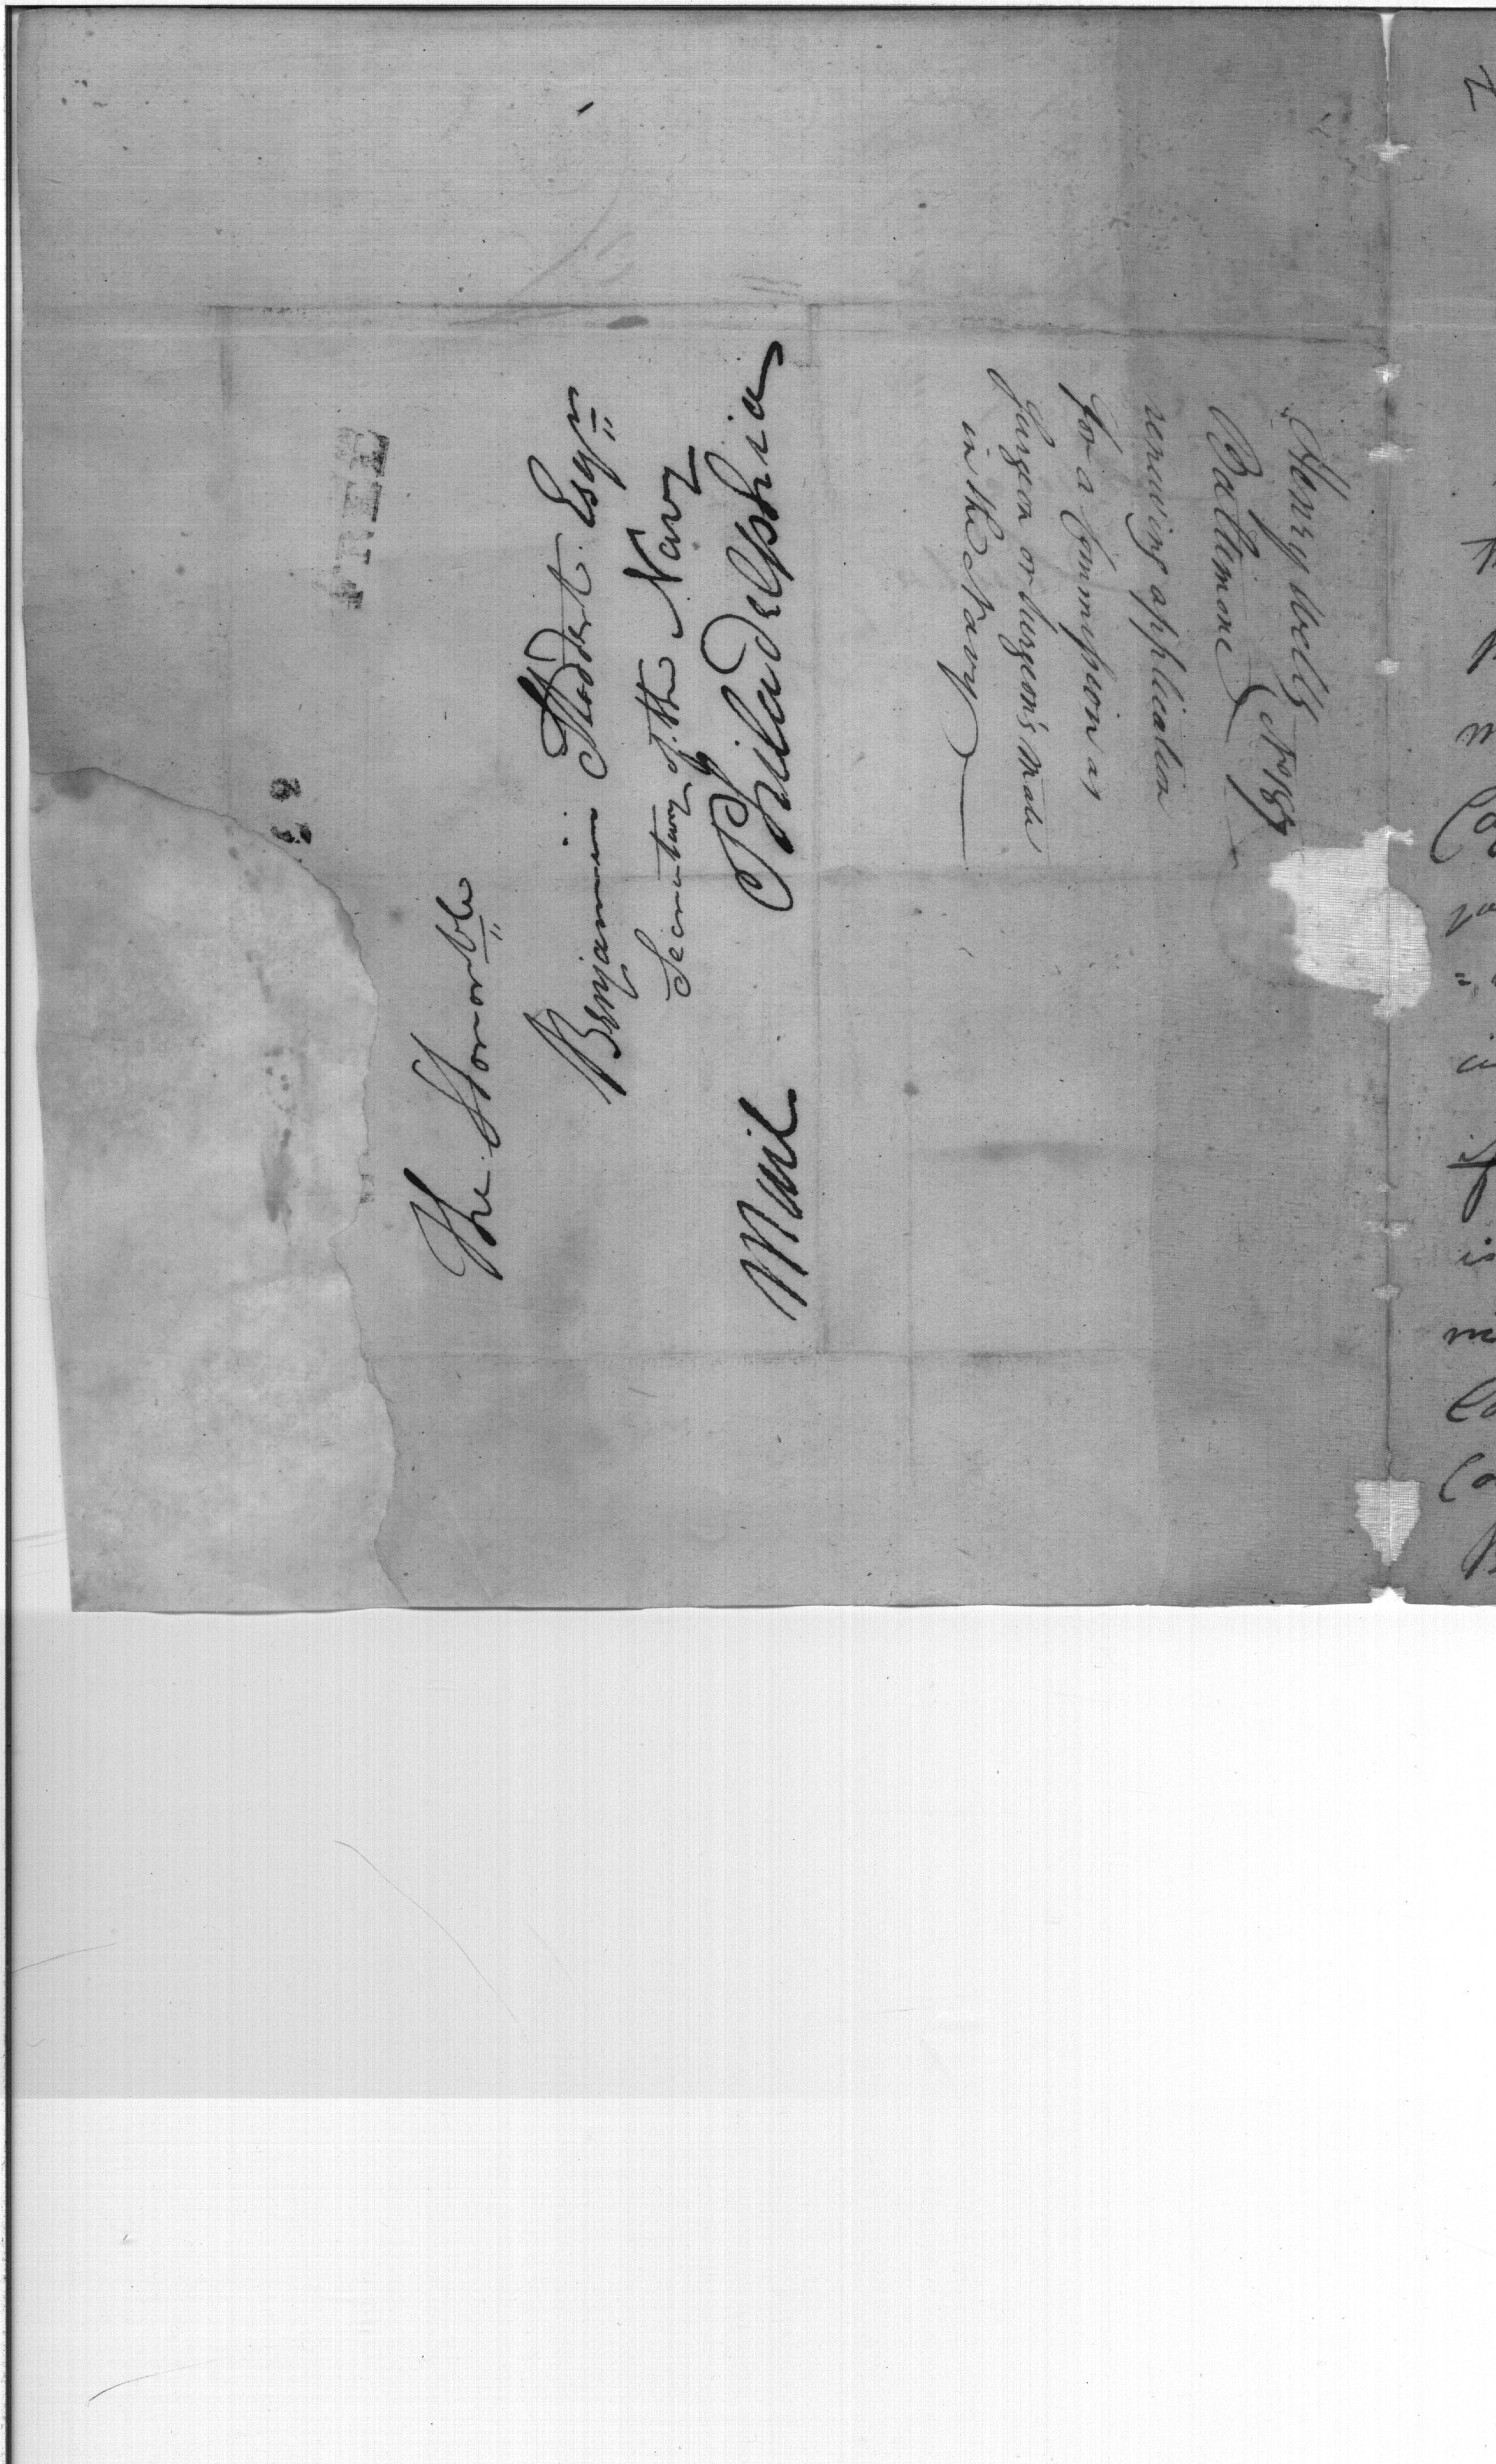 FREE
The Honor^ble
Benjamin Stoddert Esq^r
Secretary of the Navy
Philadelphia
Mail
Henry Wells
Baltimore
renewing application
for a Commission as
Surgeon or Surgeon's Mate
in the Navy